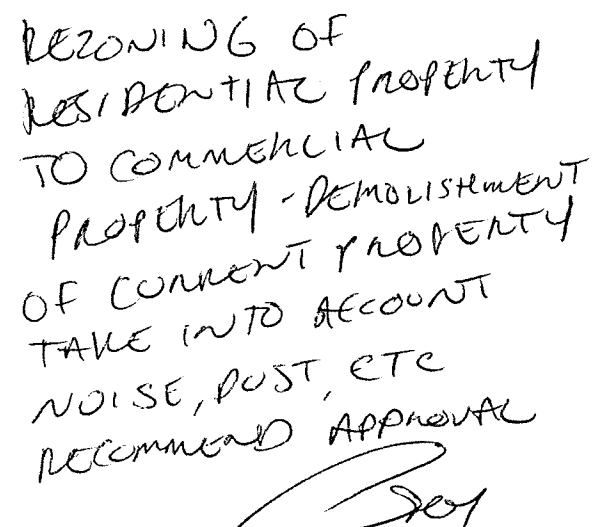 REZONING OF
RESIDENTIAL PROPERTY
TO COMMERCIAL
PROPERTY - DEMOLISHMENT
OF CURRENT PROPERTY
TAKE INTO ACCOUNT
NOISE, DUST, ETC
RECOMMEND APPROVAL